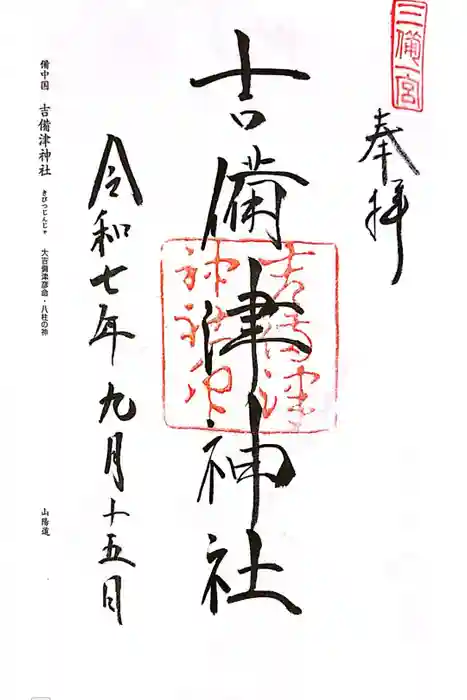 三備一宮
奉拝
吉備津神社
吉備津
神社印
令和七年九月十五日
備中国 吉備津神社 きびつじんじゃ 大吉備津彦命・八柱の神
山陽道